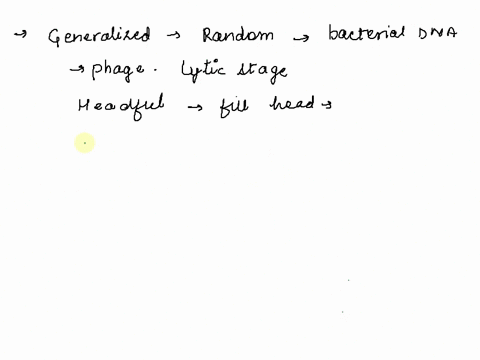 → Generalized → Random → bacterial DNA
→ phage. Lytic stage
Headful → fill head →